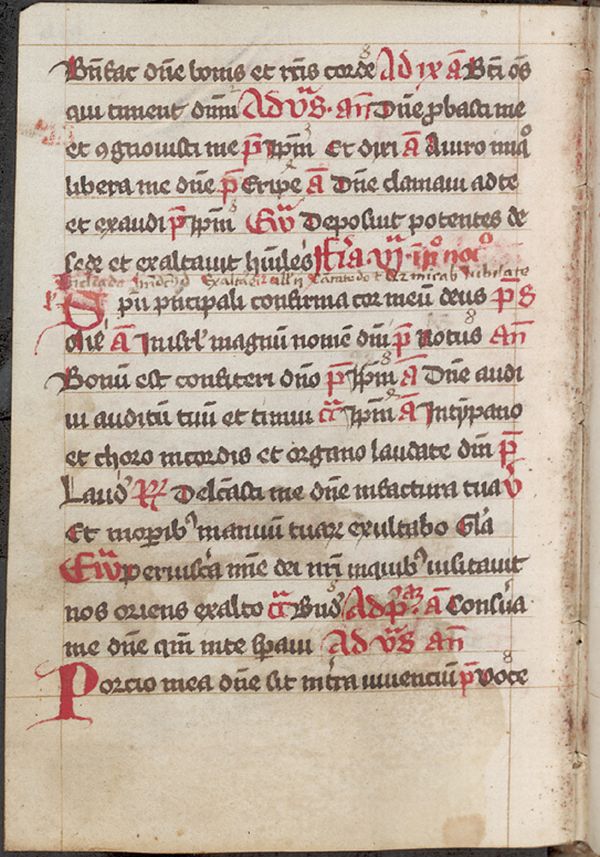 Bn̄fac dn̄e bonis et rc̄tis corde Ad ix ā Bt̄i os̄
qui timent dnm̄ Ad vr̄s · an̄ Dn̄e ꝓbasti me
et ꝯgnouisti me p̄ ip̄m Et dixi ā A uiro iniqͦ
libera me dn̄e p̄ Eripe ā Dn̄e clamaui ad te
et exaudi p̄ ip̄m Ew̄ Deposuit potentes de
sede et exaltauit hūiles fr̄ia vi in noc̄
Exaltade iubilate
Spū pncipali confirma cor meū deus p̄ s
ā In isrl magnū nomē eiꝰ p̄ Notus an̄
Bonū est confiteri dn̄o p̄ ip̄m ā Dn̄e audi
ui auditū tuū et timui cā ip̄m ā In tȳpano
et choro in cordis et organo laudate dm̄ p̄
Laud R Delc̄asti me dn̄e in factura tua v
Et in oꝑibꝰ manuū tuaꝝ exultabo Gl̄a
Ew̄ Per uisc̄a mīe dei nr̄i in quibꝰ uisitauit
nos oriens ex alto cā Bn̄ds Ad p̄ ā Conserua
me dn̄e qm̄ in te sꝑaui Ad vr̄s an̄
Porcio mea dn̄e sit in tr̄a uiuenciū p̄ Voce